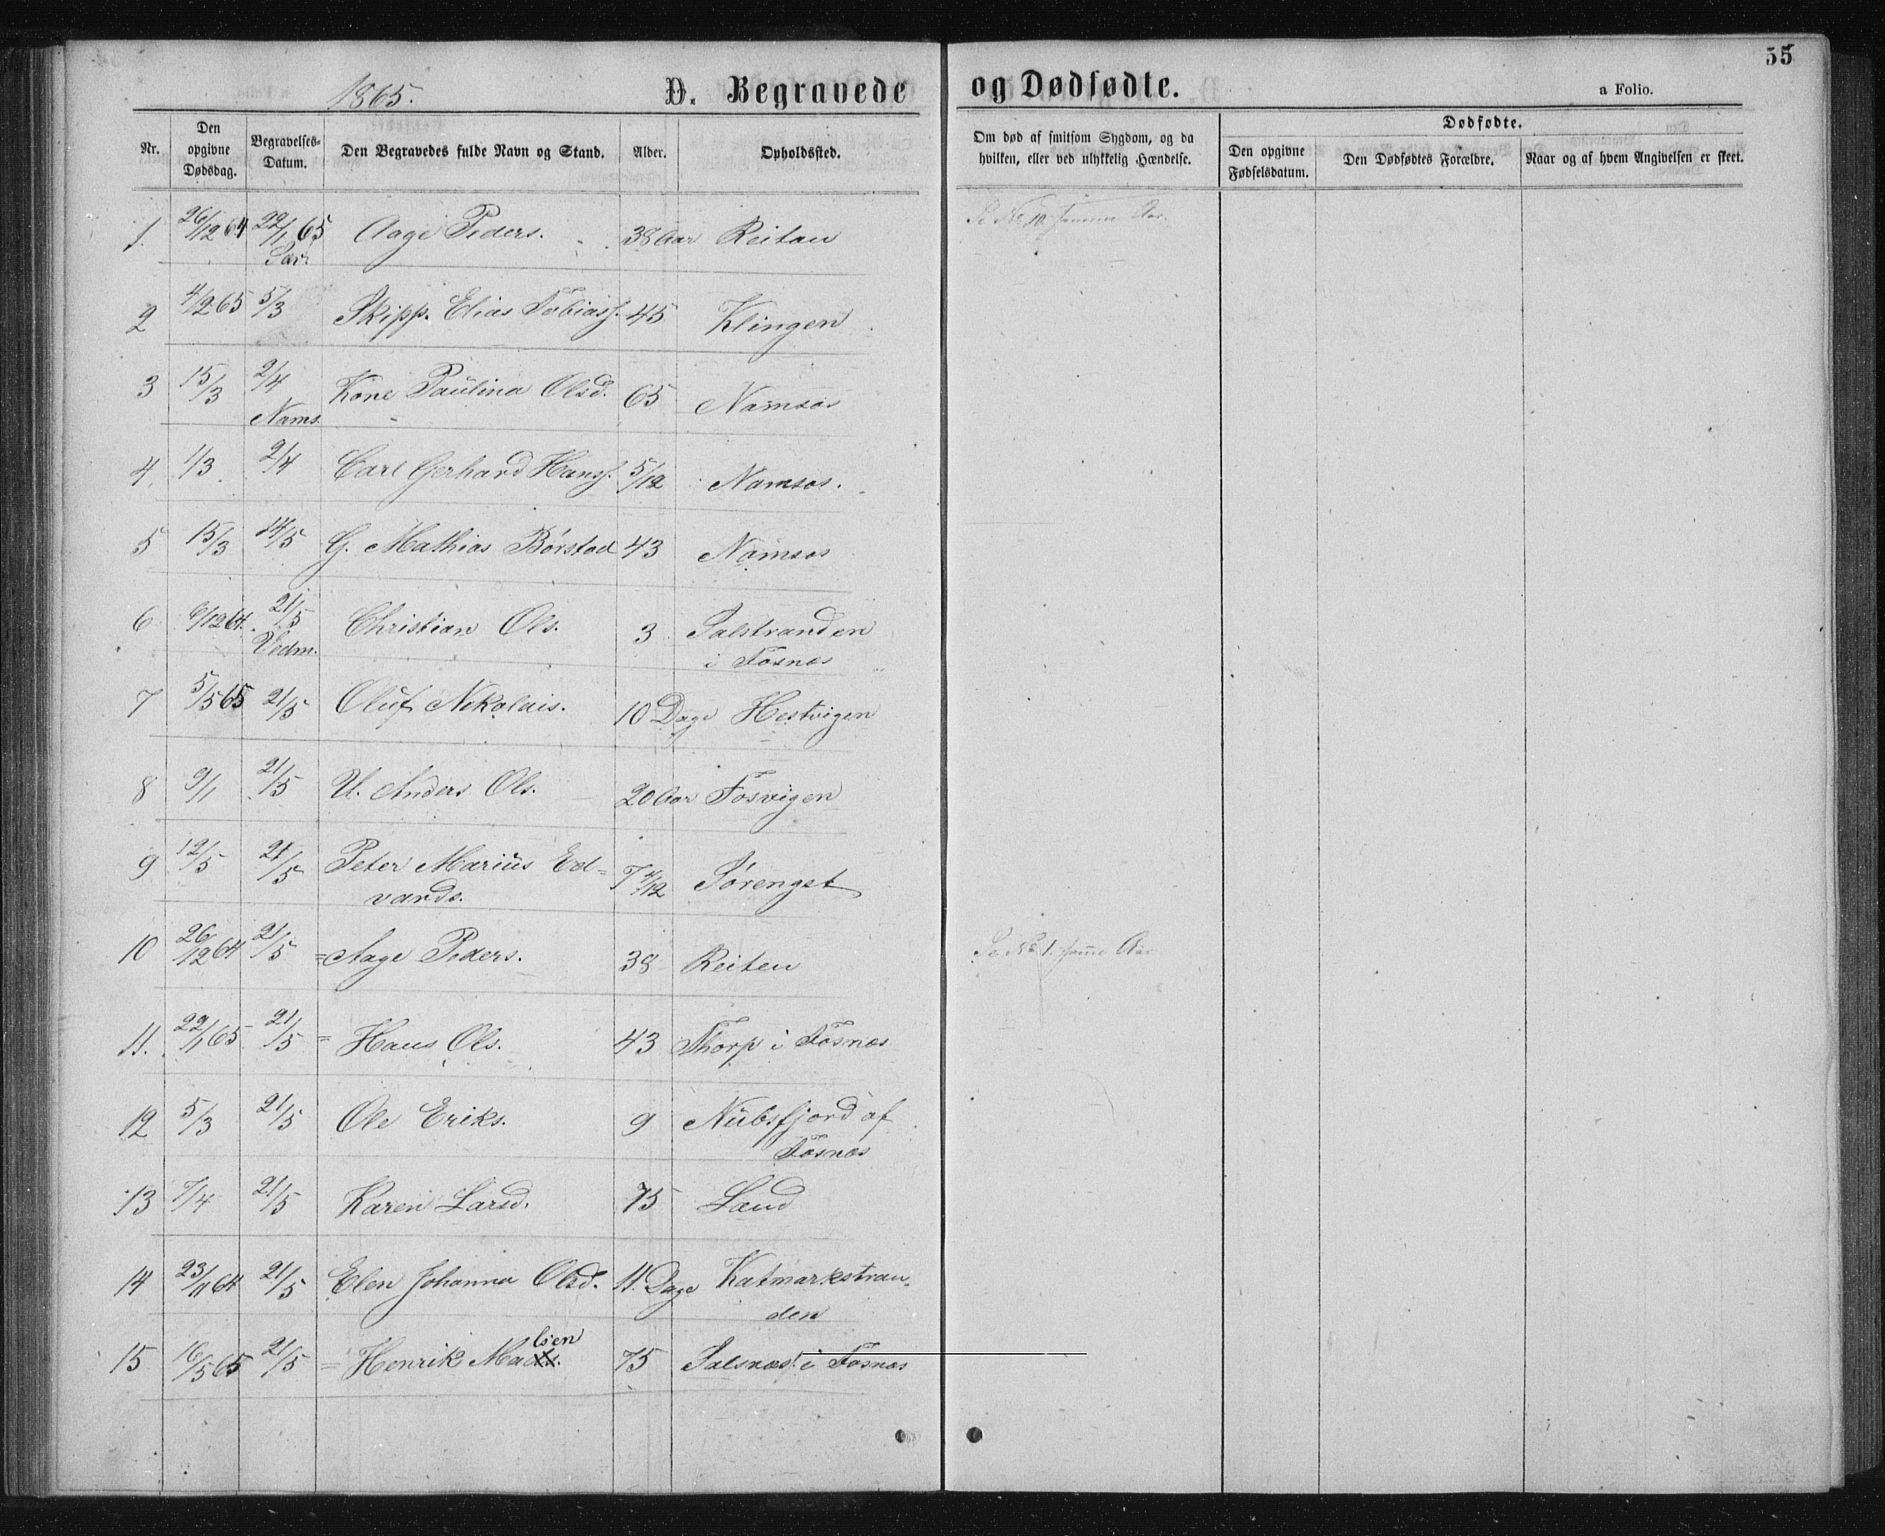 55
1865.
D. Begravede og Dødfødte.
a Folio.
Nr.
Den opgivne Dødsdag.
Begravelses-Datum.
Den Begravedes fulde Navn og Stand.
Alder.
Opholdssted.
Om død af smitsom Sygdom, og da hvilken, eller ved ulykkelig Hændelse.
Dødfødte.
Den opgivne Fødselsdatum.
Den Dødfødtes Forældre.
Naar og af hvem Angivelsen er skeet.
1. 26/12 64 22/1 65 Aage Peders. 38 Aar Reitan Se No 10 samme Aar.
2 4/2 65 5/3 Skipp. Elias Tobiass. 45 Klingen
3 15/3 2/4 Kone Paulina Olsd. 65 Namsos
Nams.
4. 1/3 2/4 Carl Gerhard Hanss. 5/12 Namsos.
5 15/3 14/5 G. Mathias Børstad 43 Namsos
6 6/12 64. 21/5 Christian Ols. 3 Salstranden
Vedm. i Fosnes
7 5/5 65 21/5 Oluf Nikolais. 10 Dage Hestvigen
8 9/1 21/5 U. Anders Ols. 20 Aar Fosvigen
9 12/5 21/5 Peter Marius Ed-
vards. 7 4/12 Sørenget
10 26/12 64 21/5 = Aage Peders. 38 Reiten Se No 1. samme Aar
11. 22/1 65 21/5 = Hans Ols. 43 Thorp i Fosnes
12 5/3 21/5 Ole Eriks. 9 Nübsfjord af
Fosnes
13 7/4 21/5 Karen Larsd. 75 Lund
14 23/11 64 21/5 Elen Johanna Olsd. 11. Dage Katmarkstran-
den
15 16/5 65 21/5 = Henrik Madsen 75 Salsnes i Fosnes